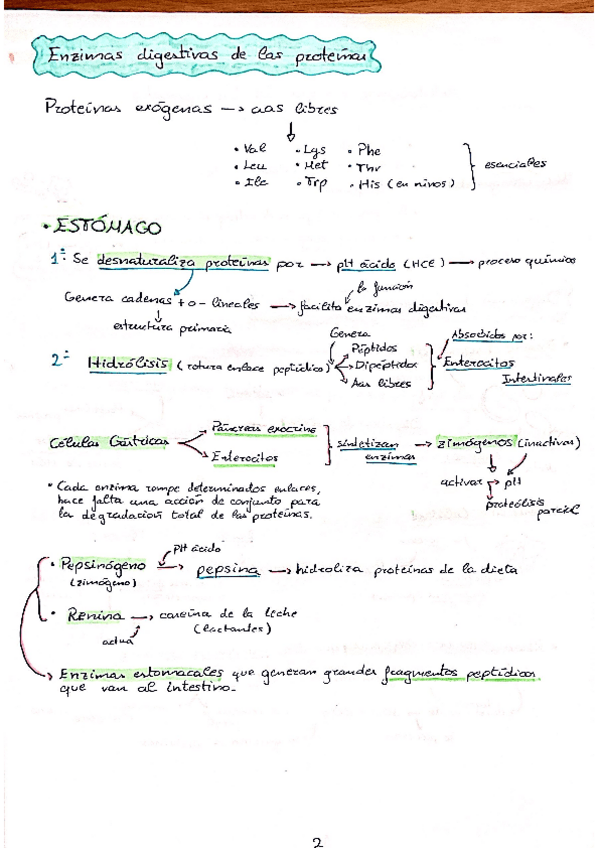 Enzimas digestivas de las proteínas
Proteínas exógenas → aas libres
• Val • Lys • Phe
• Leu • Met • Thr
• Ile • Trp • His (en niños)
esenciales
• ESTÓMAGO
1º. Se desnaturaliza proteínas por → pH ácido (HCl) → proceso químico
Genera cadenas + o - lineales → facilita la función enzimas digestivas
estructura primaria
2º Hidrólisis (rotura enlace peptídico)
Genera
Péptidos
Dipéptidos
Aas libres
Absorbidos por:
Enterocitos
Intestinales
Células Gástricas
Páncreas exocrino
Enterocitos
sintetizan
enzimas
→ zimógenos (inactivas)
activar → pH
proteólisis
parcial
• Cada enzima rompe determinados enlaces,
hace falta una acción de conjunto para
la degradación total de las proteínas.
pH ácido
• Pepsinógeno → pepsina → hidroliza proteínas de la dieta
(zimógeno)
• Renina → caseína de la leche
actúa (lactantes)
Enzimas estomacales que generan grandes fragmentos peptídicos
que van al intestino.
2